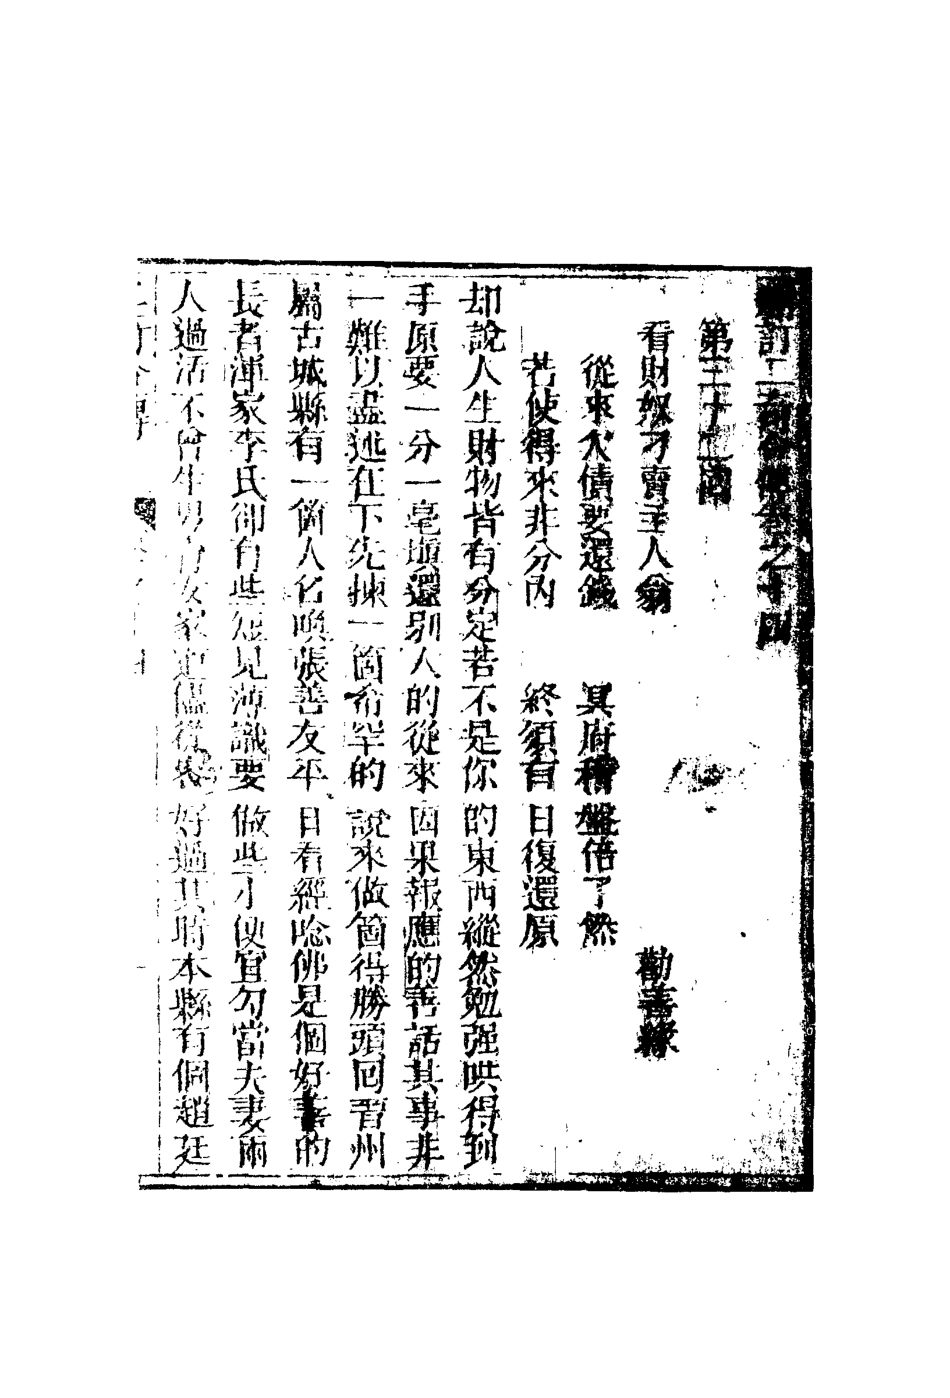 訂二奇合傳卷之十四
第三十回
看財奴刁賣主人翁　勸善緣
從來欠債要還錢　冥府稽盤倍了然
若使得來非分內　終須有日復還原
却說人生財物皆有分定若不是你的東西縱然勉强哄得到
手原要一分一毫塡還别人的從來因果報應的善話其事非
一難以盡述在下先揀一箇希罕的說來做箇得勝頭回晋州
屬古城縣有一箇人名喚張善友平日看經唸佛是個好善的
長者渾家李氏卻有些短見薄識要做些小便宜勾當夫妻兩
人過活不曾生男育女家道儘從容好過其時本縣有個趙廷